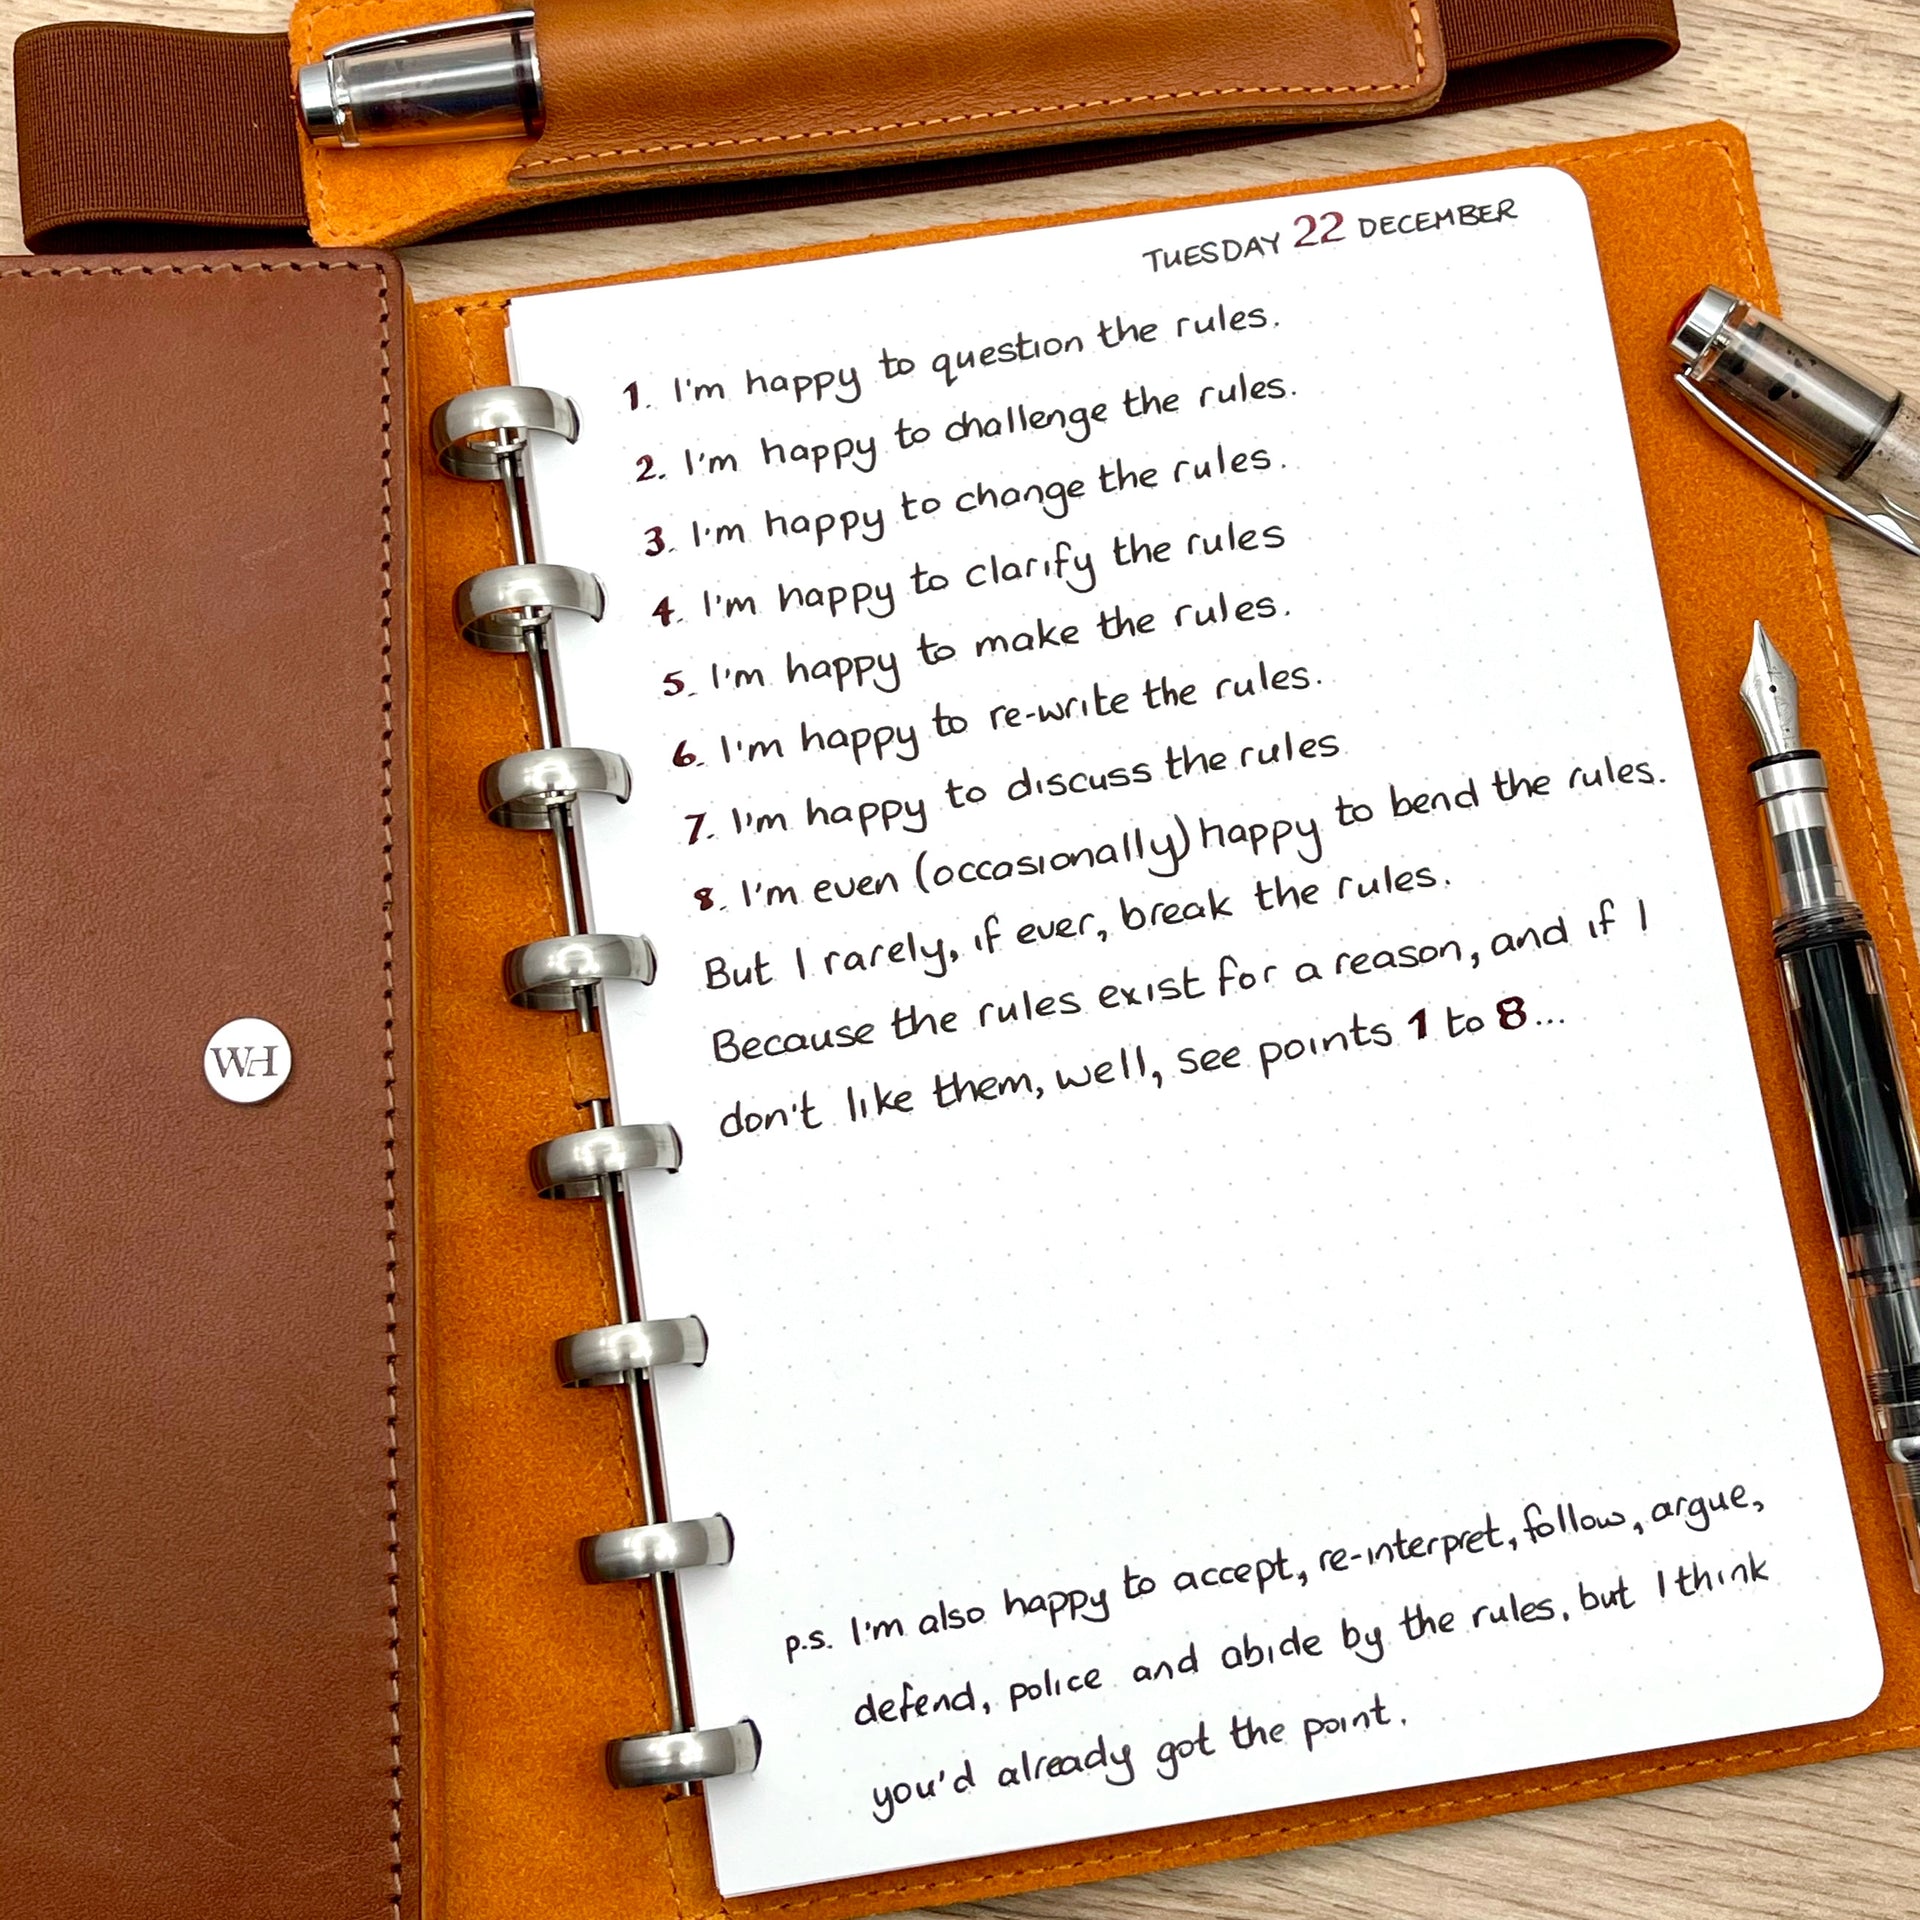 TUESDAY 22 DECEMBER
1. I'm happy to question the rules.
2. I'm happy to challenge the rules.
3. I'm happy to change the rules.
4. I'm happy to clarify the rules
5. I'm happy to make the rules.
6. I'm happy to re-write the rules.
7. I'm happy to discuss the rules
8. I'm even (occasionally) happy to bend the rules.
But I rarely, if ever, break the rules.
Because the rules exist for a reason, and if I
don't like them, well, see points 1 to 8...
p.s. I'm also happy to accept, re-interpret, follow, argue,
defend, police and abide by the rules, but I think
you'd already got the point.
WH